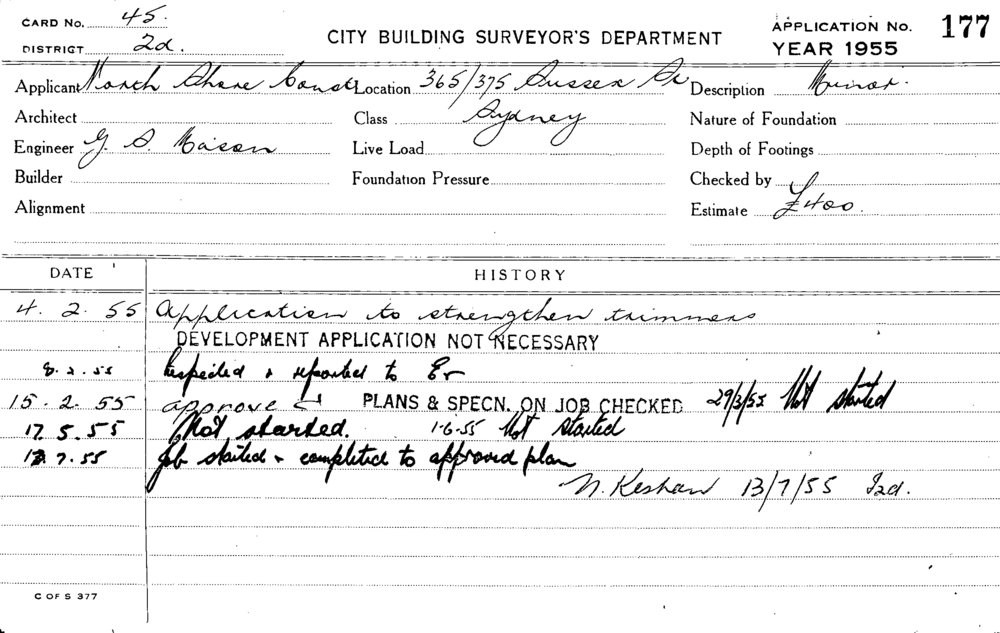 CARD No. 45.
DISTRICT 2d.
CITY BUILDING SURVEYOR'S DEPARTMENT
APPLICATION No. 177
YEAR 1955
Applicant North Shore Const Location 365/375 Sussex St Description Minor.
Architect Class Sydney Nature of Foundation
Engineer G. S. Mason Live Load Depth of Footings
Builder Foundation Pressure Checked by
Alignment Estimate £400.
DATE HISTORY
4. 2. 55 Application to strengthen trimmers
DEVELOPMENT APPLICATION NOT NECESSARY
8. 2. 55 Inspected & reported to Er
15. 2. 55 approve PLANS & SPECN. ON JOB CHECKED 29/3/55 Not started
17. 5. 55 Not started. 1.6.55 Not started
13. 7. 55 Job started & completed to approved plan
N. Keshan 13/7/55
C OF S 377